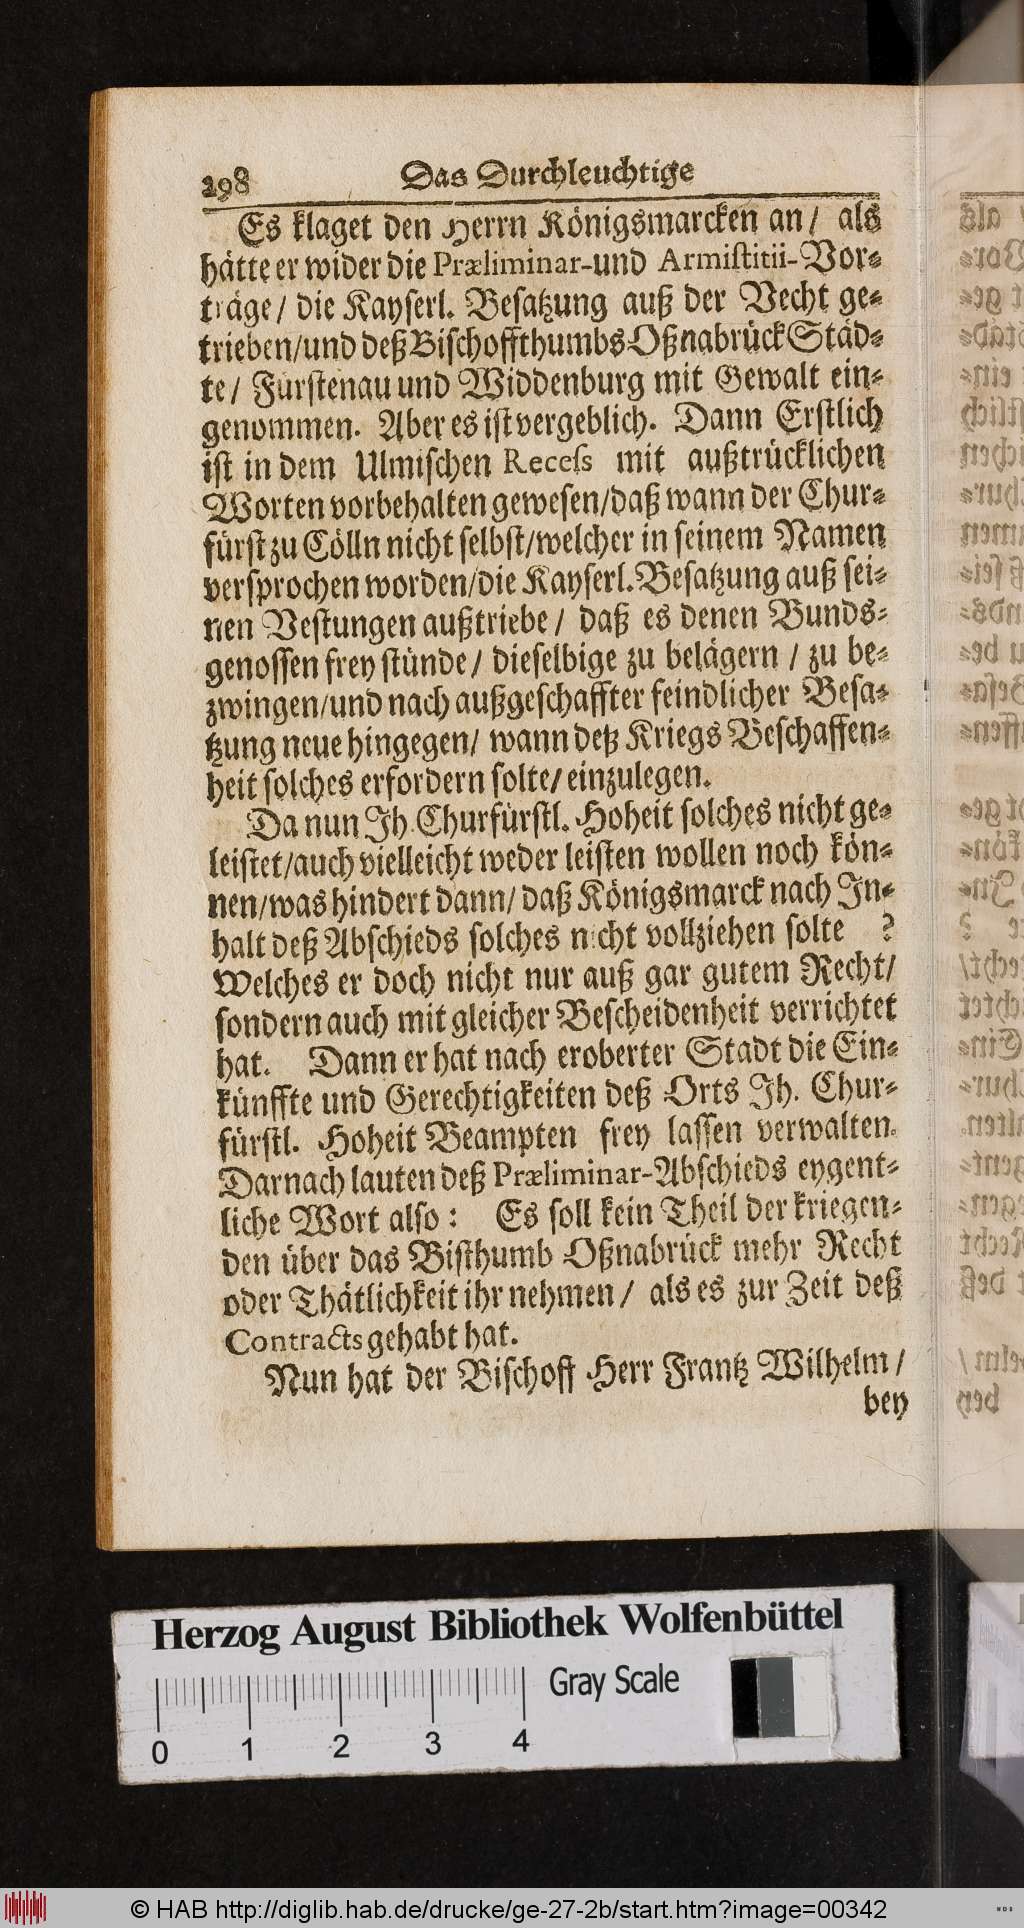 298 Das Durchleuchtige
Es klaget den Herrn Königsmarcken an/ als
hätte er wider die Præliminar-und Armistitii-Vor-
träge/ die Kayserl. Besatzung auß der Vecht ge-
trieben/und deß Bischoffthumbs Oßnabrück Städ-
te/ Fürstenau und Widdenburg mit Gewalt ein-
genommen. Aber es ist vergeblich. Dann Erstlich
ist in dem Ulmischen Recess mit außtrücklichen
Worten vorbehalten gewesen/daß wann der Chur-
fürst zu Cölln nicht selbst/welcher in seinem Namen
versprochen worden/die Kayserl. Besatzung auß sei-
nen Vestungen außtriebe/ daß es denen Bunds-
genossen frey stünde/ dieselbige zu belägern / zu be-
zwingen/und nach außgeschaffter feindlicher Besa-
tzung neue hingegen/ wann deß Kriegs Beschaffen-
heit solches erfordern solte/ einzulegen.
Da nun Jh. Churfürstl. Hoheit solches nicht ge-
leistet/auch vielleicht weder leisten wollen noch kön-
nen/was hindert dann/ daß Königsmarck nach Jn-
halt deß Abschieds solches nicht vollziehen solte ?
Welches er doch nicht nur auß gar gutem Recht/
sondern auch mit gleicher Bescheidenheit verrichtet
hat. Dann er hat nach eroberter Stadt die Ein-
künffte und Gerechtigkeiten deß Orts Jh. Chur-
fürstl. Hoheit Beampten frey lassen verwalten.
Darnach lauten deß Præliminar-Abschieds eygent-
liche Wort also: Es soll kein Theil der kriegen-
den über das Bisthumb Oßnabrück mehr Recht
oder Thätlichkeit ihr nehmen/ als es zur Zeit deß
Contracts gehabt hat.
Nun hat der Bischoff Herr Frantz Wilhelm /
bey
Herzog August Bibliothek Wolfenbüttel
Gray Scale
0 1 2 3 4
© HAB http://diglib.hab.de/drucke/ge-27-2b/start.htm?image=00342